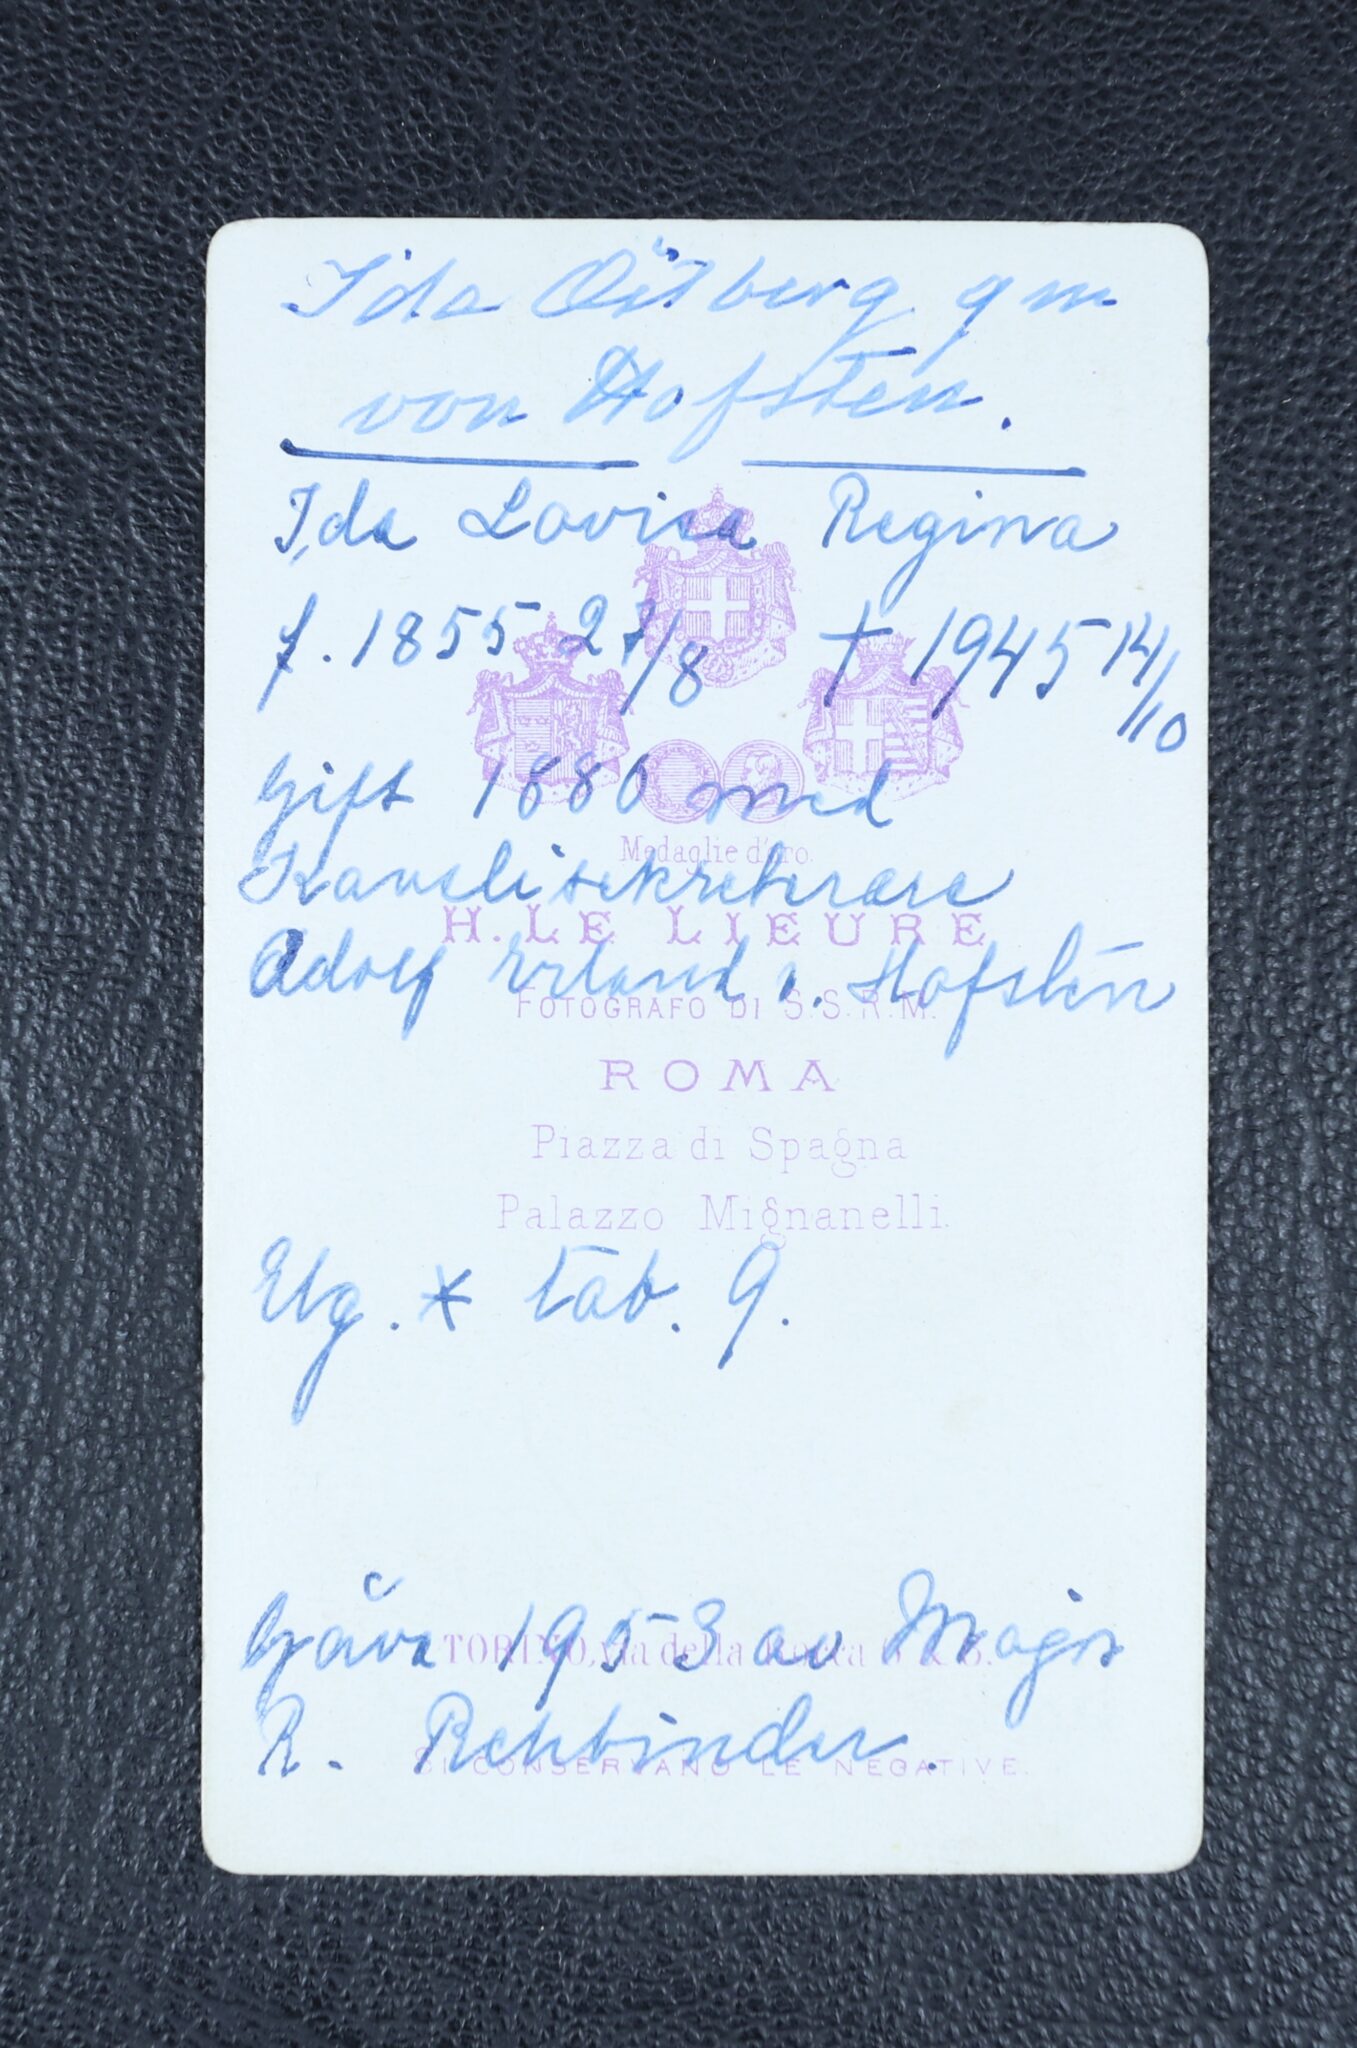 Ida Östberg gm
von Hofsten.
Ida Lovisa Regina
f. 1855 27/8 † 1945 14/10
Gift 1880 med
Medaglie d'oro.
Kanslisekreterare
H. LE LIEURE
Adolf Erland v. Hofsten
FOTOGRAFO DI S.S.R.M.
ROMA
Piazza di Spagna
Palazzo Mignanelli.
Elg. * tab. 9.
Gåva 1953 av Magis
TORINO, via della
R. Rehbinder.
SI CONSERVANO LE NEGATIVE.